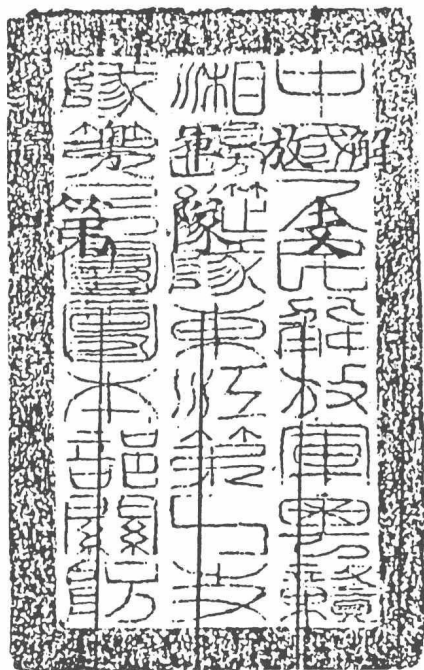 中國人民解放軍粵贛
湘邊縱隊東江第一支
隊第三團團本部關防